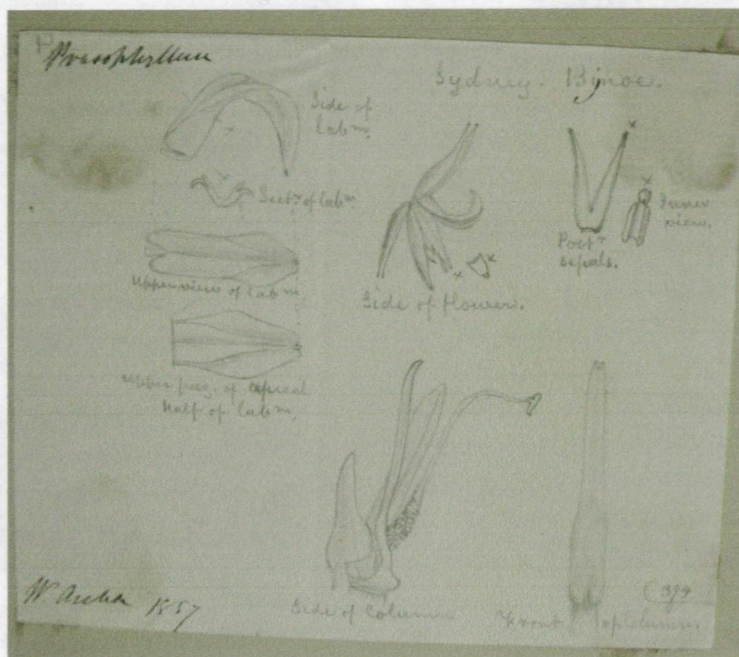 Prasophyllum
Sydney - Binoe.
Side of
lab^m.
Sect^n of lab^m.
Upper view of lab^m.
Upper
of apical
half of lab^m.
x
x
x
x
x
Side of flower.
Post^r
sepals.
Inner
view.
Side of Column
Front of column.
W. Archer 1857